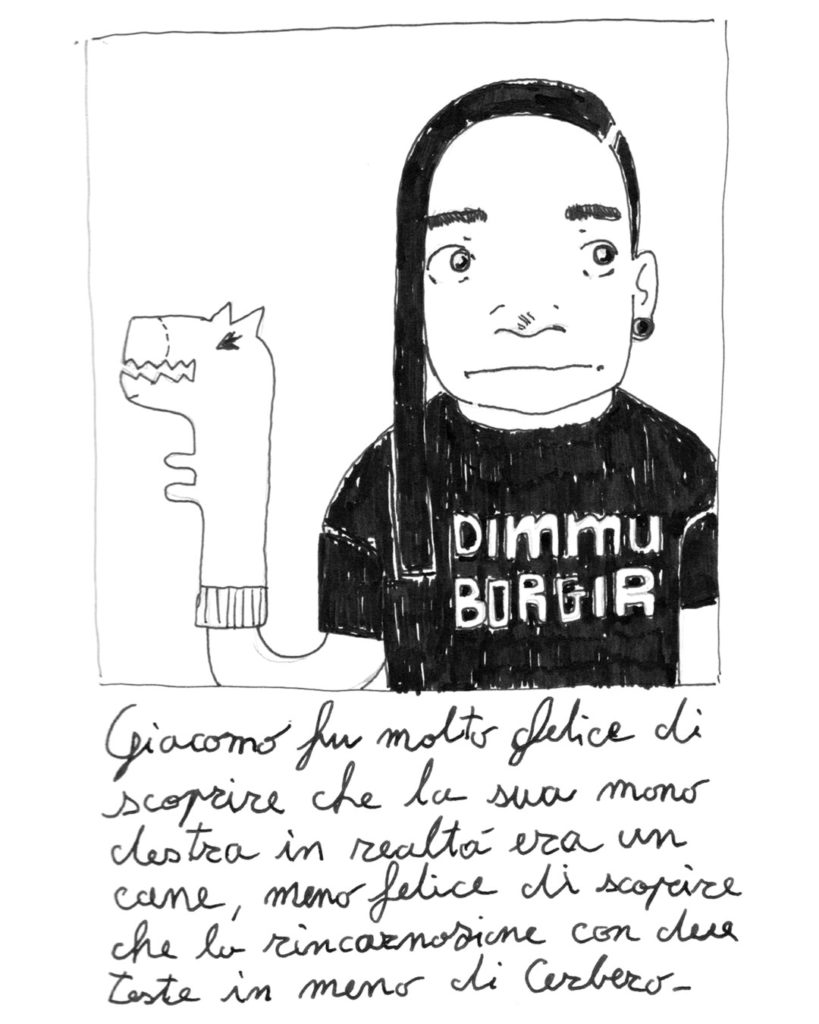 DIMMU
BORGIR
Giacomo fu molto felice di
scoprire che la sua mano
destra in realtà era un
cane, meno felice di scoprire
che la rincarnazione con due
teste in meno di Cerbero_